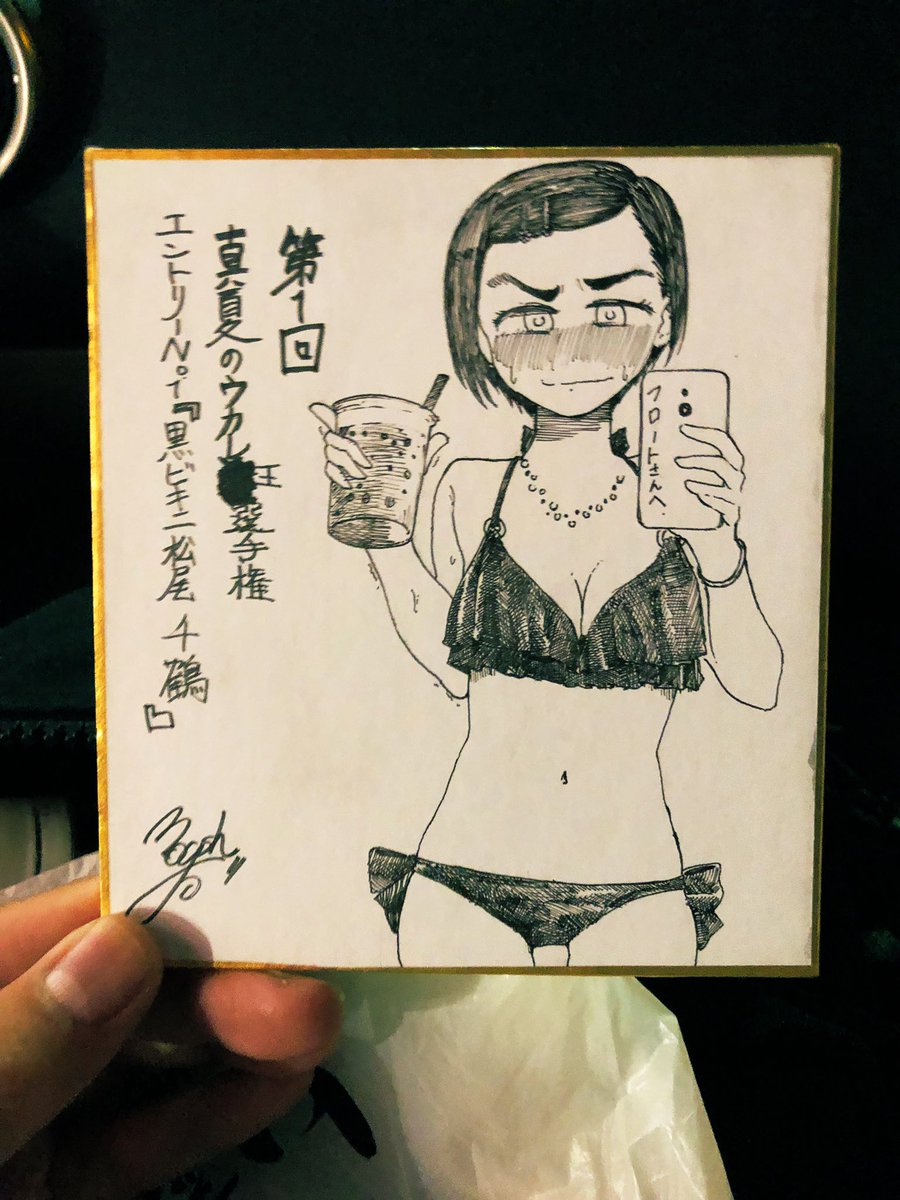 第1回
真夏のウカレ王選手権
エントリーNo.1『黒ビキニ松尾千鶴』
フロートさんへ